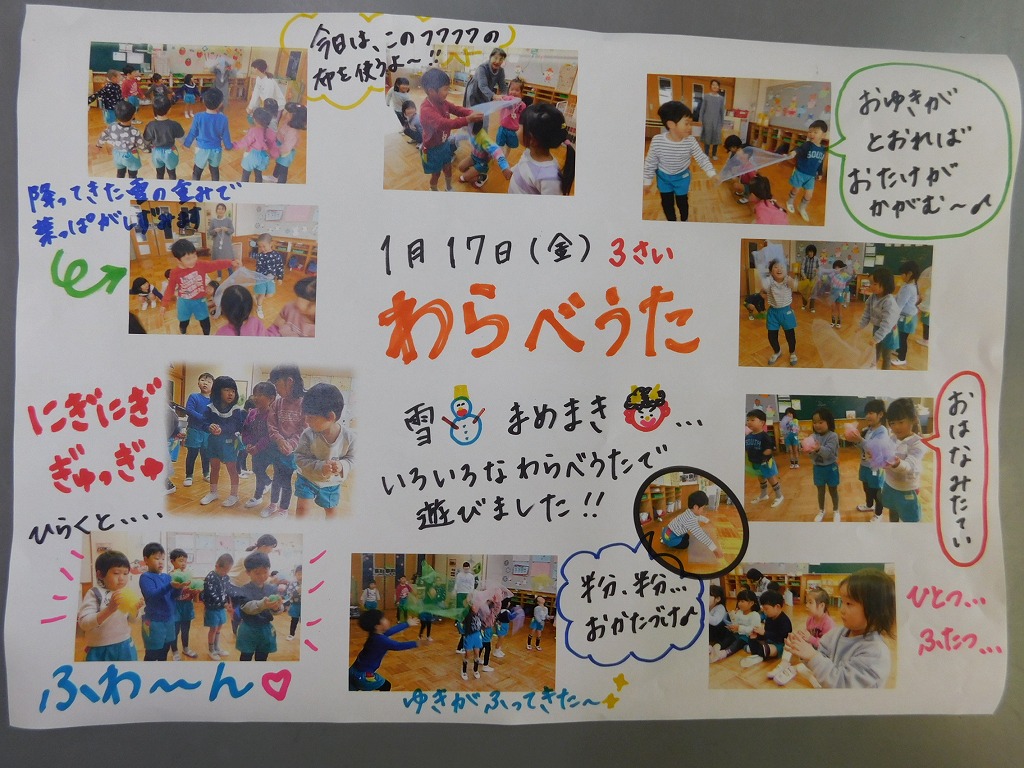 今日は、このフワフワの
布を使うよ〜!!
おゆきが
とおれば
おたけが
かがむ〜♪
降ってきた雪の重みで
葉っぱがしずみ
1月17日(金) 3さい
わらべうた
雪 まめまき …
いろいろなわらべうたで
遊びました!!
にぎにぎ
ぎゅっぎゅ
ひらくと....
ふわ〜〜ん♡
ゆきがふってきた〜
半分、半分...
おかたづけ♪
おはなみたてい
ひとつ...
ふたつ...